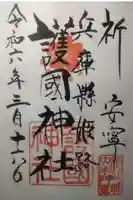 祈 安寧
兵庫縣姫路
護國神社
令和六年三月十六日